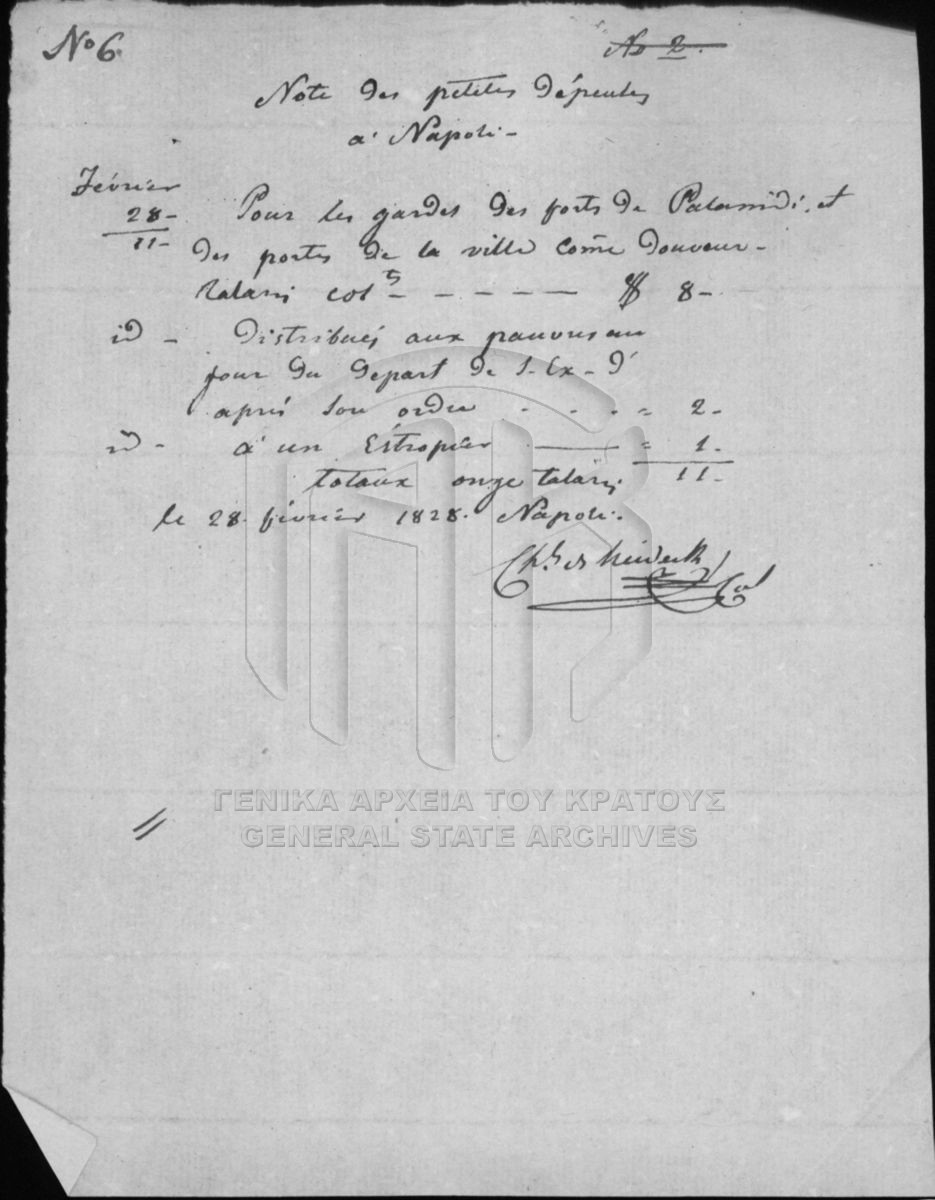 No 6.
No 2.
Note des petites dépenses
a' Napoli -
Février
28 -
11 -
Pour les gardes des forts de Palamidi, et
des portes de la ville come douceur -
talari col ts - - - - - $ 8 -
id - distribués aux pauvres au
jour du départ de S. Ex - d'
après son ordre - - - = 2 -
id - a' un Estropier = 1 -
totaux onze talari 11 -
le 28 février 1828. Napoli.
Ch de Heideck
Col
ΓΕΝΙΚΑ ΑΡΧΕΙΑ ΤΟΥ ΚΡΑΤΟΥΣ
GENERAL STATE ARCHIVES